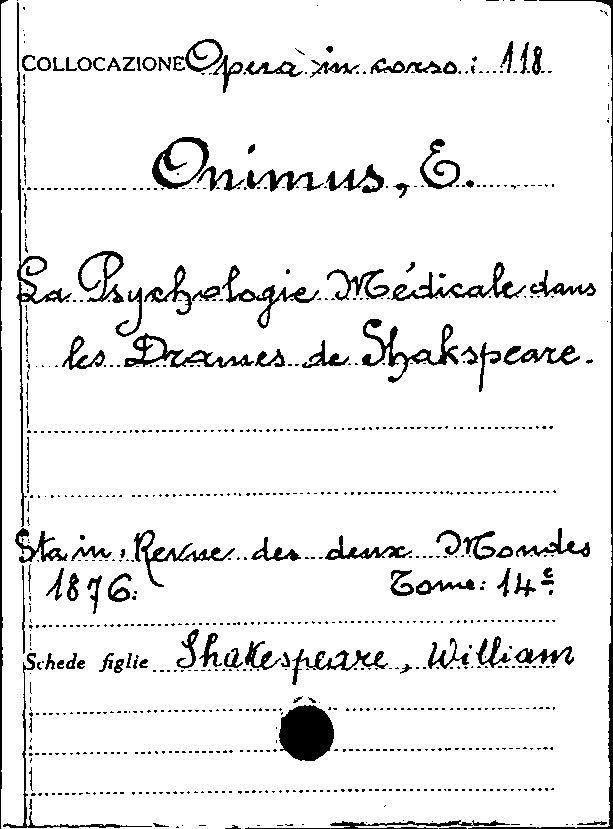 COLLOCAZIONE Opera in corso: 118
Onimus, E.
La Psychologie Médicale dans
les Drames de Shakspeare.
Sta in: Revue des deux Mondes
1876. Tome: 14e
Schede figlie Shakespeare, William